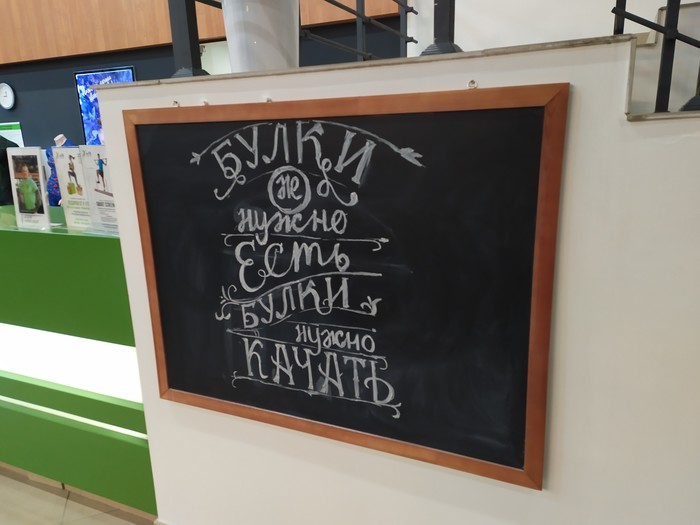 БУЛКИ
не
нужно
Есть
БУЛКИ
нужно
КАЧАТЬ